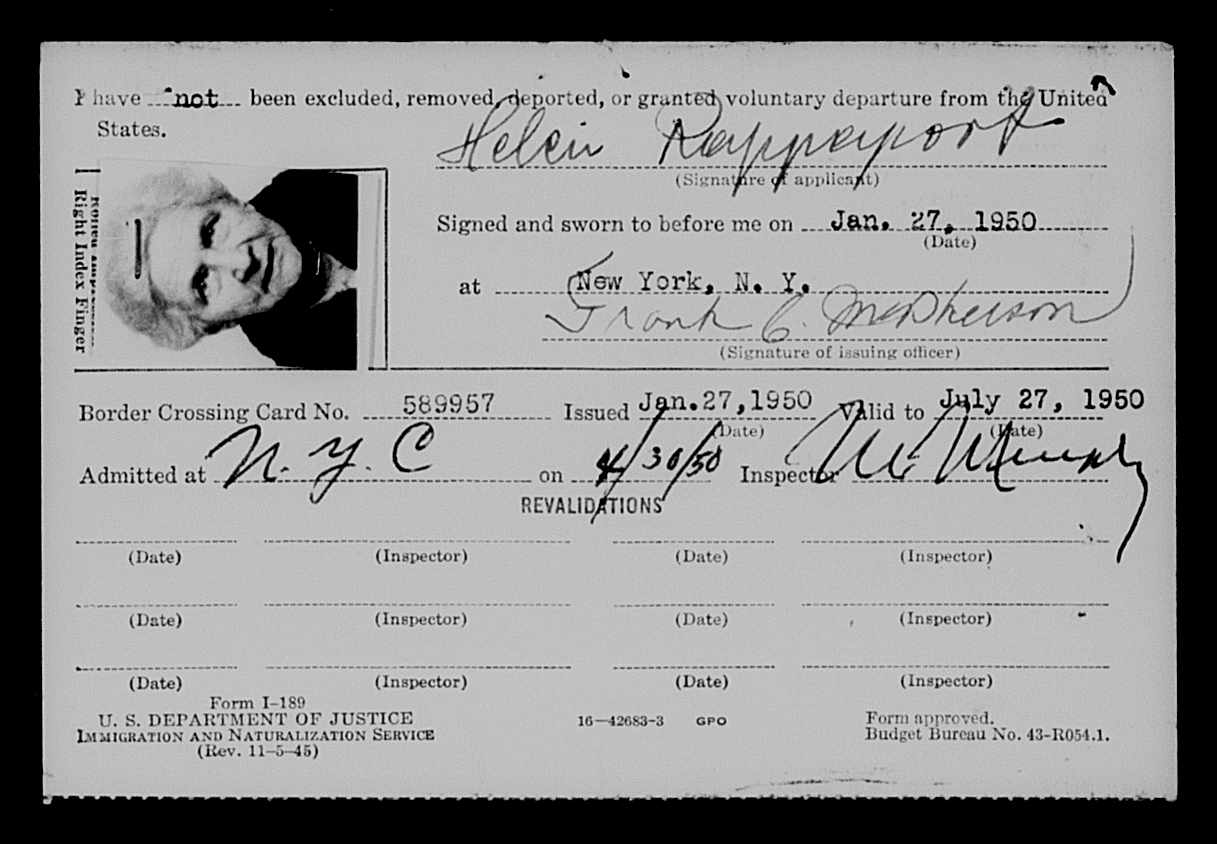 I have not been excluded, removed, deported, or granted voluntary departure from the United
States.
Helen Rappaport
(Signature of applicant)
Right Index Finger
Signed and sworn to before me on Jan. 27, 1950
(Date)
at New York, N. Y.
Frank C. McPherson
(Signature of issuing officer)
Border Crossing Card No. 589957 Issued Jan.27,1950 Valid to July 27, 1950
(Date) (Date)
Admitted at N. Y. C on 4/30/50 Inspector
REVALIDATIONS
(Date) (Inspector) (Date) (Inspector)
(Date) (Inspector) (Date) (Inspector)
(Date) (Inspector) (Date) (Inspector)
Form I-189
U. S. DEPARTMENT OF JUSTICE 16—42683-3 GPO Form approved.
IMMIGRATION AND NATURALIZATION SERVICE Budget Bureau No. 43-R054.1.
(Rev. 11-5-45)